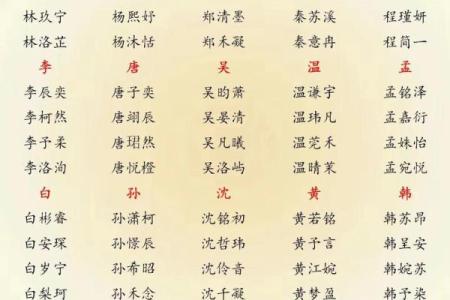 林玖宁 杨熙妤 郑清墨 秦苏溪 程瑾妍
林洛芷 杨沐恬 郑禾凝 秦意冉 程简一
李 唐 吴 温 孟
李辰奕 唐子奕 吴昀萧 温谦宇 孟铭泽
李柯然 唐翊辰 吴晏清 温玮凡 孟嘉衍
李予柔 唐珺然 吴凡曦 温莞禾 孟姝怡
李洛洵 唐悦橙 吴洛屿 温晴茉 孟宛悦
白 孙 沈 黄 韩
白彬睿 孙潇柯 沈铭初 黄若铭 韩苏昂
白安琛 孙憬辰 沈哲玮 黄予言 韩呈安
白岁宁 孙希昭 沈伶音 黄江婉 韩予诺
白梨珂 孙禾念 沈千凝 黄梦盈 韩予染